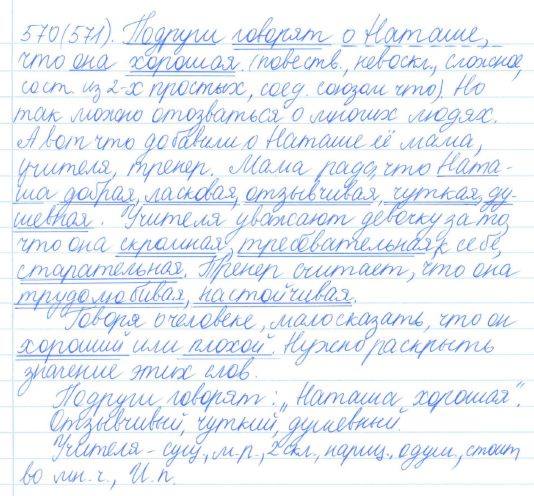 570(571). Подруги говорят о Наташе,
что она хорошая. (повеств., невоскл., сложное,
сост. из 2-х простых, соед. союзом что). Но
так можно отозваться о многих людях.
А вот что добавили о Наташе её мама,
учителя, тренер. Мама рада, что Ната-
ша добрая, ласковая, отзывчивая, чуткая, ду-
шевная. Учителя уважают девочку за то,
что она скромная, требовательная к себе,
старательная. Тренер считает, что она
трудолюбивая, настойчивая.
Говоря о человеке, мало сказать, что он
хороший или плохой. Нужно раскрыть
значение этих слов.
Подруги говорят: „Наташа хорошая".
Отзывчивый, чуткий, душевный.
Учителя - сущ., м.р., 2 скл., нариц., одуш., стоит
во мн. ч., И.п.